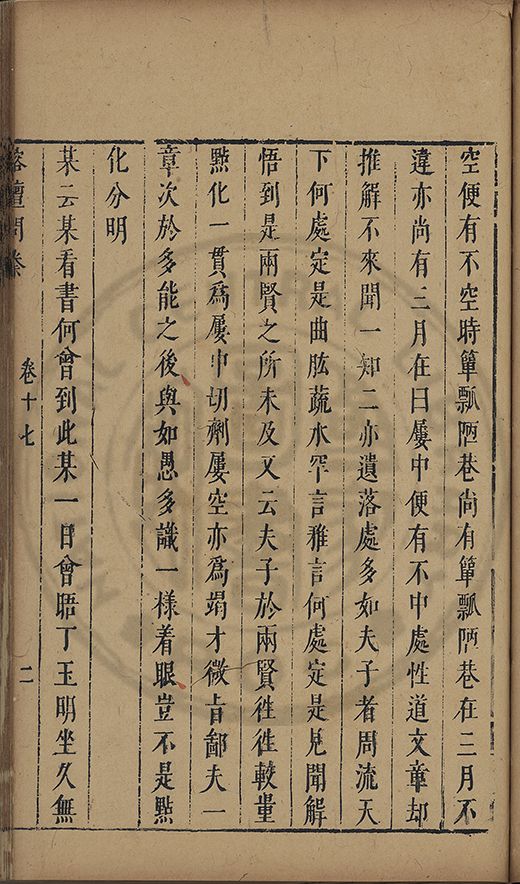 空便有不空時簞瓢陋巷尚有簞瓢陋巷在三月不
違亦尚有三月在曰屢中便有不中處性道文章却
推解不來聞一知二亦遺落處多如夫子者周流天
下何處定是曲肱蔬水罕言雅言何處定是見聞解
悟到是兩賢之所未及又云夫子於兩賢徃徃較量
㸃化一貫爲屢中切劑屢空亦爲竭才微旨鄙夫一
章次於多能之後與如愚多識一樣着眼豈不是㸃
化分明
某云某看書何曾到此某一日會晤丁玉明坐久無
榕壇問業 卷十七 二